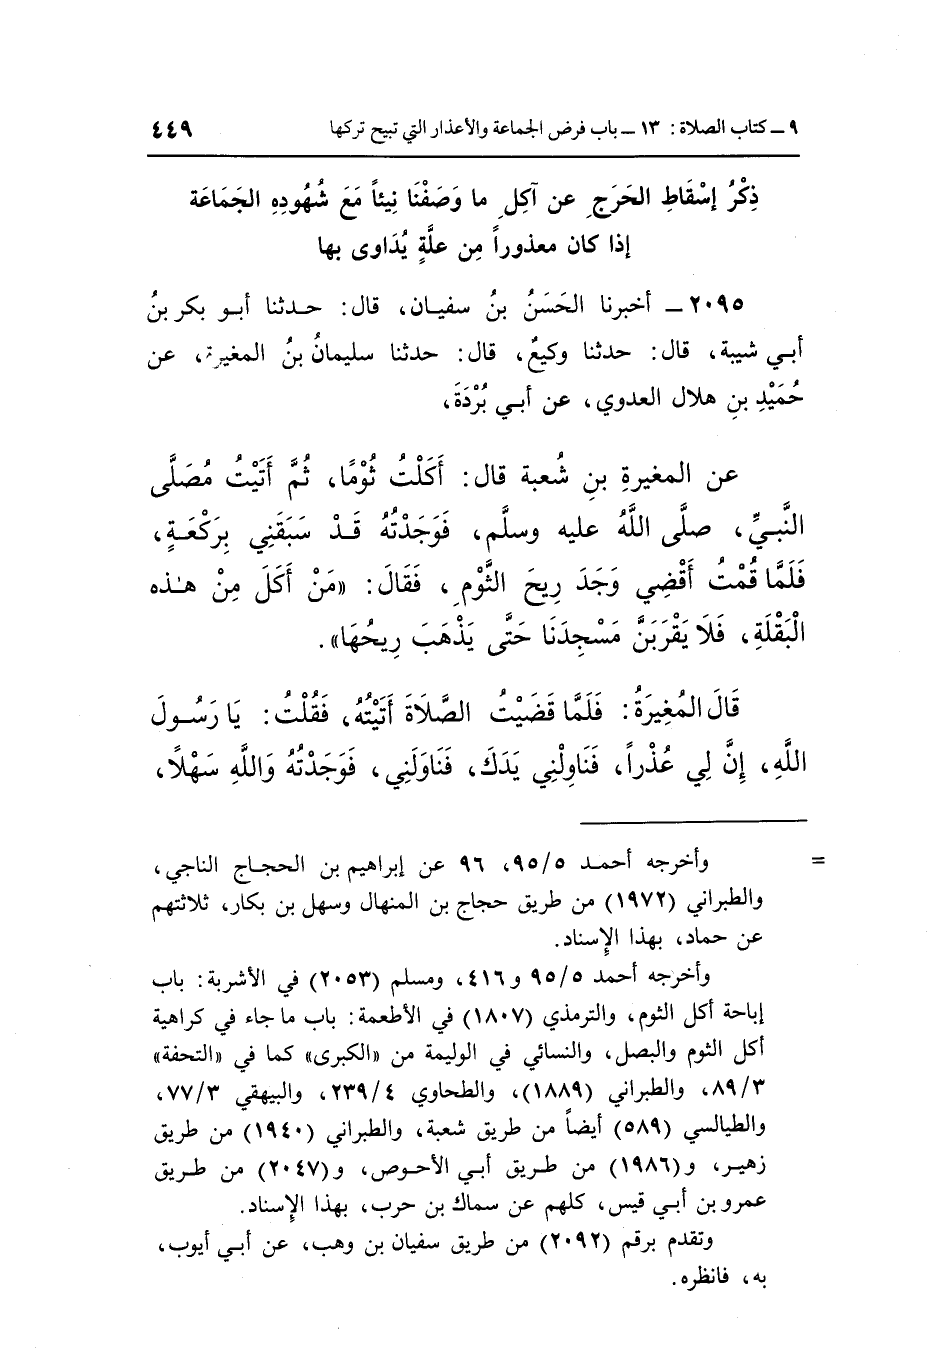 ٩ ـ كتاب الصلاة: ١٣ ـ باب فرض الجماعة والأعذار التي تبيح تركها ٤٤٩
ذِكْرُ إسْقَاطِ الحَرَجِ عن آكِلِ ما وَصَفْنَا نِيئاً مَعَ شُهُودِهِ الجَمَاعَة
إذا كان معذوراً مِن علَّةٍ يُدَاوى بها
٢٠٩٥ ـ أخبرنا الحَسَنُ بنُ سفيان، قال: حدثنا أبو بكر بنُ
أبي شيبة، قال: حدثنا وكيعٌ، قال: حدثنا سليمانُ بنُ المغيرة، عن
حُمَيْدِ بنِ هلال العدوي، عن أبي بُرْدَةَ،
عن المغيرةِ بنِ شُعبة قال: أَكَلْتُ ثُوْمًا، ثُمَّ أَتَيْتُ مُصَلَّى
النَّبيِّ، صلَّى اللَّهُ عليه وسلَّم، فَوَجَدْتُهُ قَدْ سَبَقَنِي بِرَكْعَةٍ،
فَلَمَّا قُمْتُ أَقْضِي وَجَدَ رِيحَ الثُّوْمِ، فَقَالَ: «مَنْ أَكَلَ مِنْ هٰذه
الْبَقْلَةِ، فَلَا يَقْرَبَنَّ مَسْجِدَنَا حَتَّى يَذْهَبَ رِيحُهَا».
قَالَ المُغِيرَةُ: فَلَمَّا قَضَيْتُ الصَّلَاةَ أَتَيْتُهُ، فَقُلْتُ: يَا رَسُولَ
اللَّهِ، إِنَّ لِي عُذْراً، فَنَاوِلْنِي يَدَكَ، فَنَاوَلَنِي، فَوَجَدْتُهُ وَاللَّهِ سَهْلًا،
= وأخرجه أحمد ٩٥/٥، ٩٦ عن إبراهيم بن الحجاج الناجي،
والطبراني (١٩٧٢) من طريق حجاج بن المنهال وسهل بن بكار، ثلاثتهم
عن حماد، بهذا الإسناد.
وأخرجه أحمد ٩٥/٥ و٤١٦، ومسلم (٢٠٥٣) في الأشربة: باب
إباحة أكل الثوم، والترمذي (١٨٠٧) في الأطعمة: باب ما جاء في كراهية
أكل الثوم والبصل، والنسائي في الوليمة من «الكبرى» كما في «التحفة»
٨٩/٣، والطبراني (١٨٨٩)، والطحاوي ٢٣٩/٤، والبيهقي ٧٧/٣،
والطيالسي (٥٨٩) أيضاً من طريق شعبة، والطبراني (١٩٤٠) من طريق
زهير، و(١٩٨٦) من طريق أبي الأحوص، و(٢٠٤٧) من طريق
عمرو بن أبي قيس، كلهم عن سماك بن حرب، بهذا الإسناد.
وتقدم برقم (٢٠٩٢) من طريق سفيان بن وهب، عن أبي أيوب،
به، فانظره.